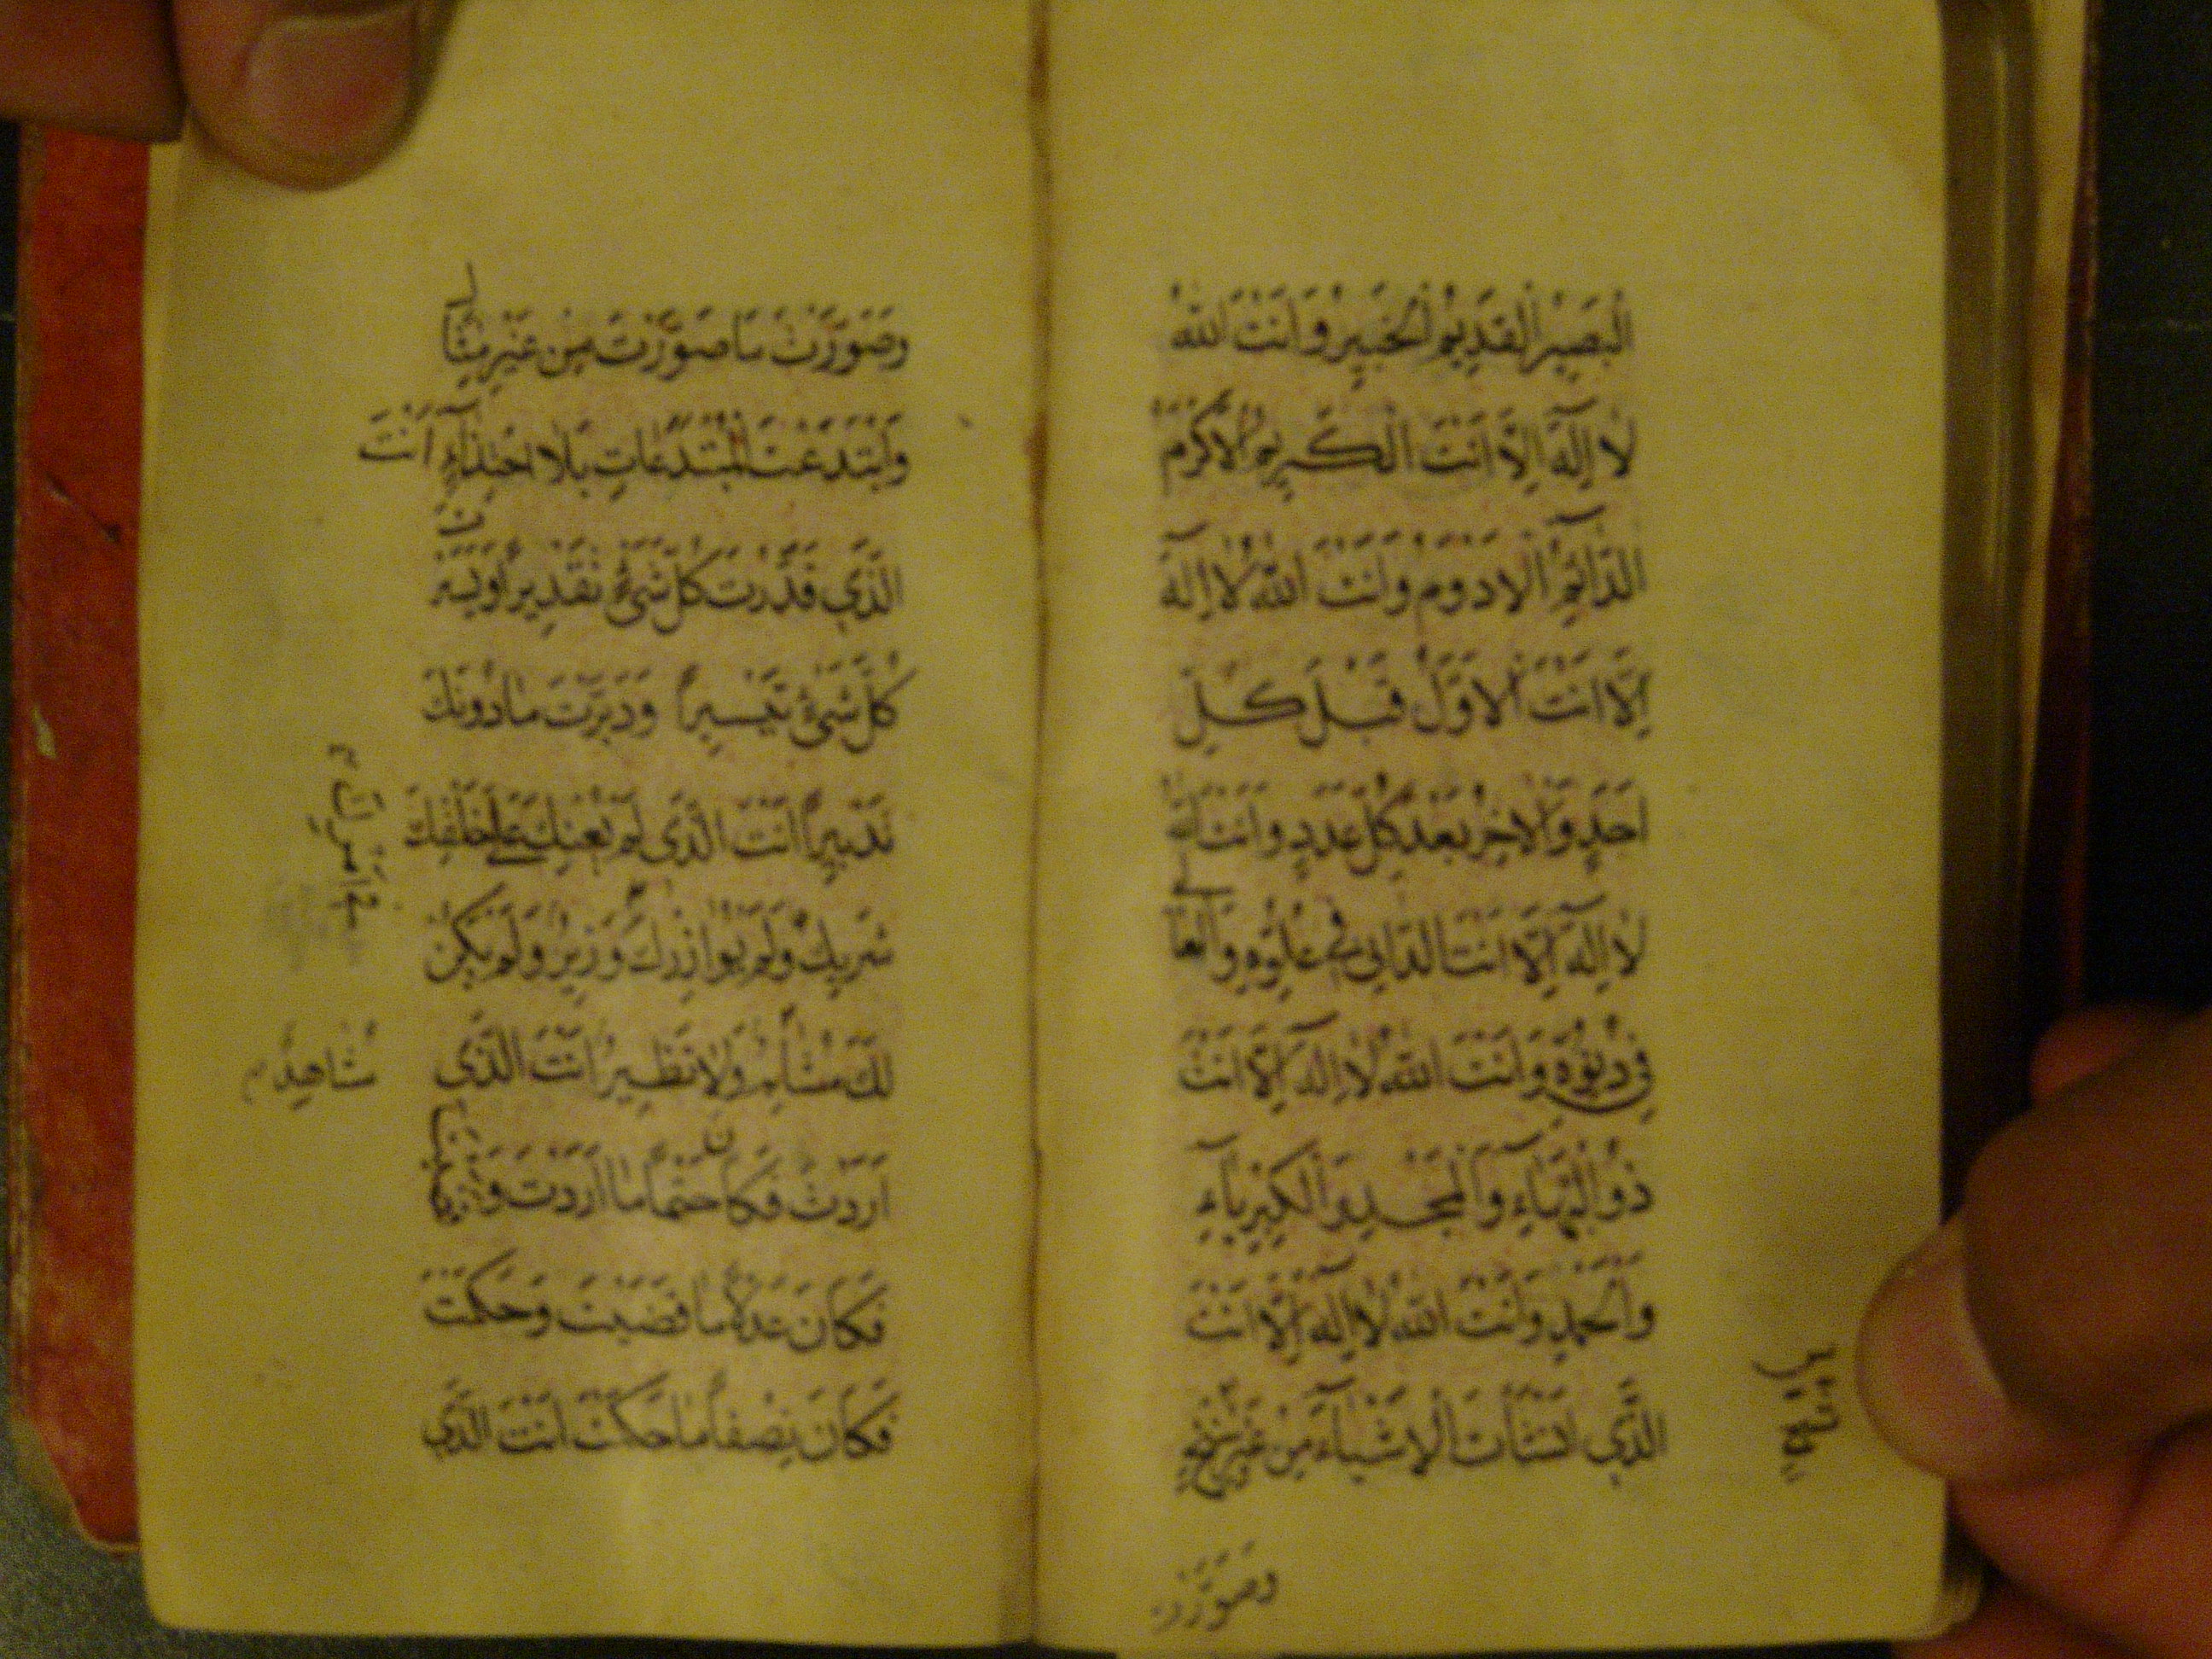 الْبَصِيرُ الْقَدِيمُ الْخَبِيرُ وَأَنْتَ اللهُ
لَا إِلَهَ إِلَّا أَنْتَ الْكَرِيمُ الْأَكْرَمُ
الدَّائِمُ الْأَدْوَمُ وَأَنْتَ اللهُ لَا إِلَهَ
إِلَّا أَنْتَ الْأَوَّلُ قَبْلَ كُلِّ
أَحَدٍ وَالْآخِرُ بَعْدَ كُلِّ عَدَدٍ وَأَنْتَ اللهُ
لَا إِلَهَ إِلَّا أَنْتَ الدَّانِي فِي عُلُوِّهِ وَالْعَالِي
فِي دُنُوِّهِ وَأَنْتَ اللهُ لَا إِلَهَ إِلَّا أَنْتَ
ذُو الْبَهَاءِ وَالْمَجْدِ وَالْكِبْرِيَاءِ
وَالْحَمْدِ وَأَنْتَ اللهُ لَا إِلَهَ إِلَّا أَنْتَ
الَّذِي أَنْشَأْتَ الْأَشْيَاءَ مِنْ غَيْرِ
وَصَوَّرْتَ
وَصَوَّرْتَ مَا صَوَّرْتَ مِنْ غَيْرِ مِثَالٍ
وَابْتَدَعْتَ الْمُبْتَدَعَاتِ بِلَا احْتِذَاءٍ أَنْتَ
الَّذِي قَدَّرْتَ كُلَّ شَيْءٍ تَقْدِيرًا وَيَسَّرْتَ
كُلَّ شَيْءٍ تَيْسِيرًا وَدَبَّرْتَ مَا دُونَكَ
تَدْبِيرًا أَنْتَ الَّذِي لَمْ يُعِنْكَ عَلَى خَلْقِكَ
شَرِيكٌ وَلَمْ يُوَازِرْكَ وَزِيرٌ وَلَمْ يَكُنْ
لَكَ مُشَابِهٌ وَلَا نَظِيرٌ أَنْتَ الَّذِي
شَاهِدٌ م
أَرَدْتَ فَكَانَ حَتْمًا مَا أَرَدْتَ وَقَضَيْتَ
فَكَانَ عَدْلًا مَا قَضَيْتَ وَحَكَمْتَ
فَكَانَ نِصْفًا مَا حَكَمْتَ أَنْتَ الَّذِي